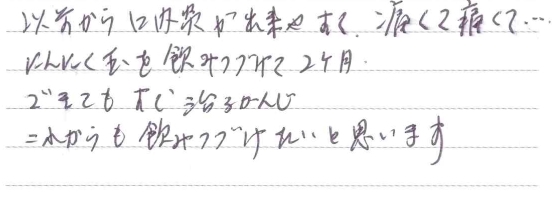 以前から口内炎が出来やすく、痛くて痛くて…
にんにく玉を飲みつづけて2ヶ月.
できてもすぐ治るかんじ
これからも飲みつづけたいと思います